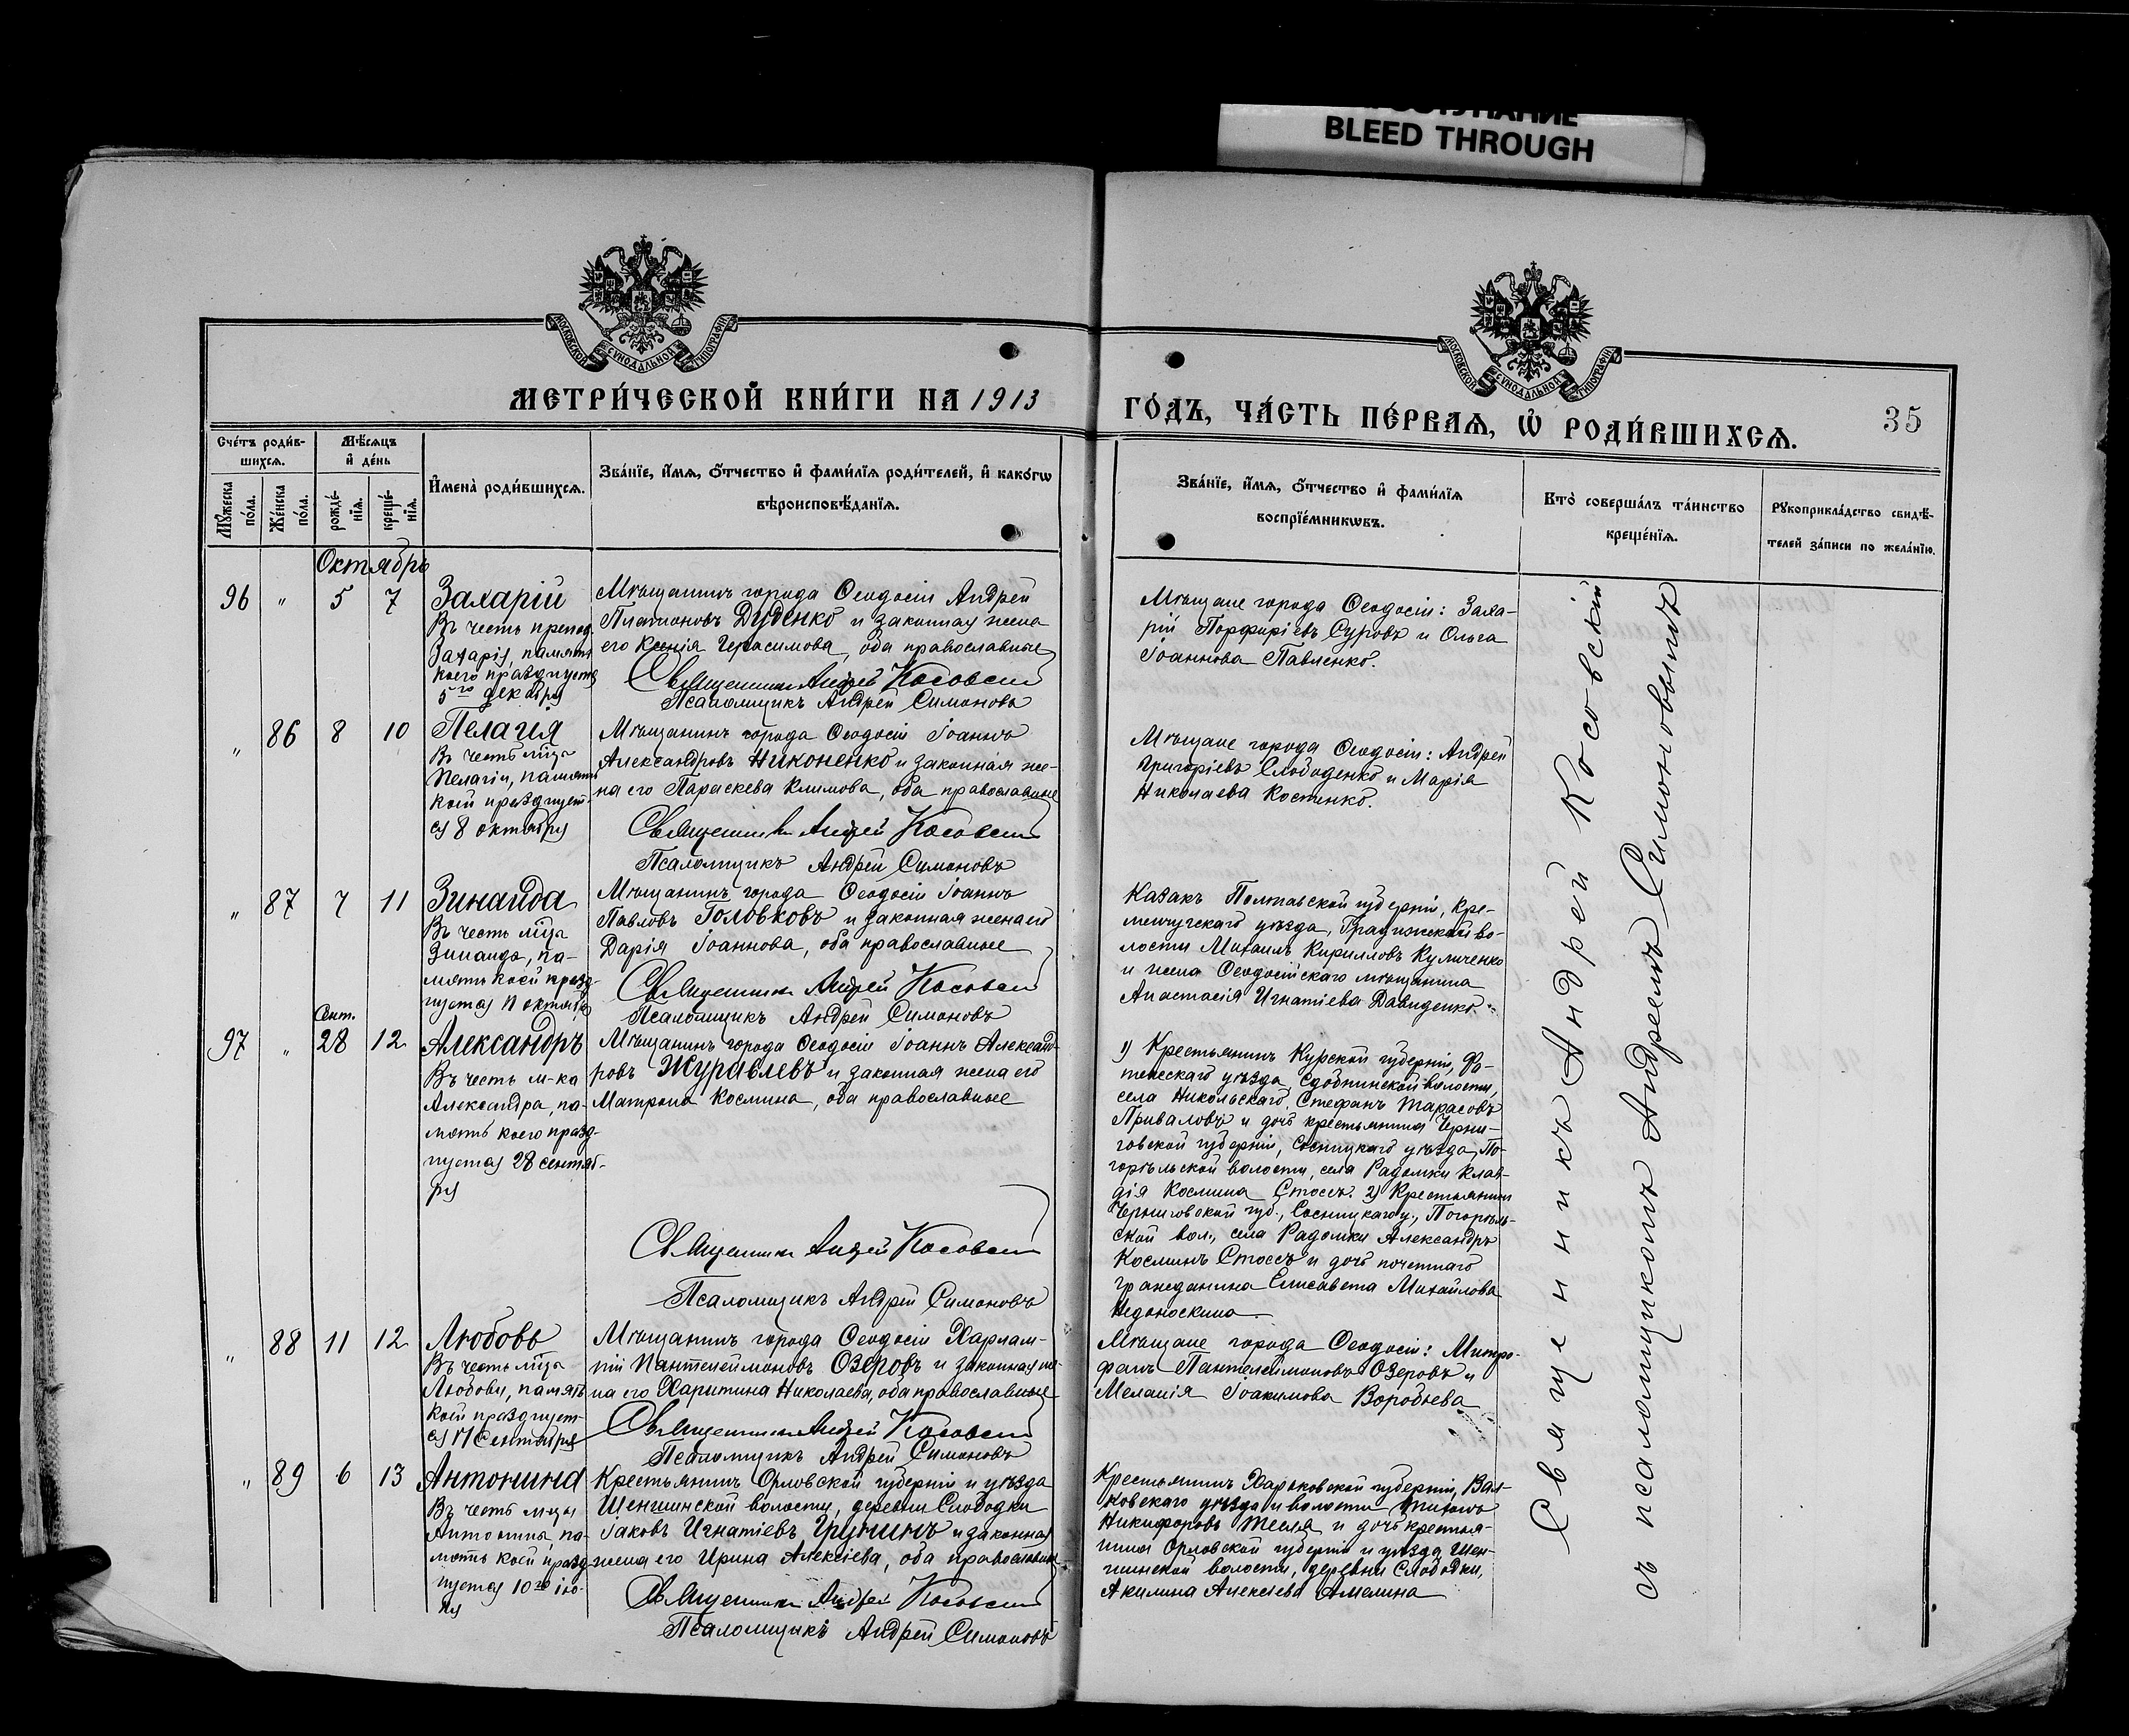 ПОСТУПАНИЕ
BLEED THROUGH
МОСКОВСКОЙ СѴНОДАЛЬНОЙ ТИПОГРАФІИ
МОСКОВСКОЙ СѴНОДАЛЬНОЙ ТИПОГРАФІИ
МЕТРИ́ЧЕСКОЙ КНИ́ГИ НА 1913
ГО́ДЪ, ЧА́СТЬ ПЕ́РВАѦ, Ѽ РОДИ́ВШИХСѦ.
35
Сче́тъ роди́в-
шихсѧ.
Мѣ́сѧцъ
и҆ де́нь
Мꙋ́жеска
по́ла.
Же́нска
по́ла.
рожде́-
нїѧ.
креще́-
нїѧ.
И҆мена̀ роди́вшихсѧ.
Зва́нїе, и҆́мѧ, ѻ҆́тчество и҆ фами́лїѧ роди́телей, и҆ како́гѡ
вѣроисповѣ́данїѧ.
Зва́нїе, и҆́мѧ, ѻ҆́тчество и҆ фами́лїѧ
воспрїе́мникѡвъ.
Кто̀ соверша́лъ та́инство
креще́нїѧ.
Рꙋкоприкла́дство свидѣ́-
телей за́писи по жела́нїю.
Октябрь
96 " 5 7
Захарій
Въ честь препод.
Захарія, память
коего празднуется
5го декабря
Мѣщанинъ города Ѳеодосіи Андрей
Платоновъ Дуденко и законная жена
его Ксенія Герасимова, оба православные
Священникъ Андрей Косовскій
Псаломщикъ Андрей Симоновъ
Мѣщане города Ѳеодосіи: Заха-
рій Порфиріевъ Суровъ и Ольга
Іоаннова Павленко.
" 86 8 10
Пелагія
Въ честь м-цы
Пелагіи, память
коей празднует-
ся 8 октября
Мѣщанинъ города Ѳеодосіи Іоаннъ
Александровъ Никоненко и законная же-
на его Параскева Климова, оба православные
Священникъ Андрей Косовскій
Псаломщикъ Андрей Симоновъ
Мѣщане города Ѳеодосіи: Андрей
Григоріевъ Слободенко и Марія
Николаева Костенко.
" 87 7 11
Зинаида
Въ честь м-цы
Зинаиды, па-
мять коей празд-
нуется 11 октября
Мѣщанинъ города Ѳеодосіи Іоаннъ
Павловъ Головковъ и законная жена его
Дарія Іоаннова, оба православные
Священникъ Андрей Косовскій
Псаломщикъ Андрей Симоновъ
Казакъ Полтавской губерніи, Кре-
менчугскаго уѣзда, Градижской во-
лости Михаилъ Кирилловъ Куличенко
и жена Ѳеодосійскаго мѣщанина
Анастасія Игнатіева Давиденко.
Сент.
97 " 28 12
Александръ
Въ честь м-ка
Александра, па-
мять коего празд-
нуется 28 сентяб-
ря
Мѣщанинъ города Ѳеодосіи Іоаннъ Александ-
ровъ Журавлевъ и законная жена его
Матрона Космина, оба православные
Священникъ Андрей Косовскій
Псаломщикъ Андрей Симоновъ
1) Крестьянинъ Курской губерніи, Фа-
тежскаго уѣзда, Сдобнинской волости,
села Никольскаго, Стефанъ Тарасовъ
Приваловъ и дочь крестьянина Черни-
говской губерніи, Сосницкаго уѣзда, По-
горѣльской волости, села Радомки Клав-
дія Космина Стоссъ. 2) Крестьянинъ
Черниговской губ., Сосницкаго у., Погорѣль-
ской вол., села Радомки Александръ
Косминъ Стоссъ и дочь почетнаго
гражданина Елисавета Михайлова
Недоноскина
" 88 11 12
Любовь
Въ честь м-цы
Любови, память
коей празднует-
ся 17 Сентября
Мѣщанинъ города Ѳеодосіи Харлам-
пій Пантелеймоновъ Озеровъ и законная же-
на его Харитина Николаева, оба православные
Священникъ Андрей Косовскій
Псаломщикъ Андрей Симоновъ
Мѣщане города Ѳеодосіи: Митро-
фанъ Пантелеймоновъ Озеровъ и
Меланія Іоакимова Воробьева
" 89 6 13
Антонина
Въ честь м-цы
Антонины, па-
мять коей празд-
нуется 10го ію-
ня
Крестьянинъ Орловской губерніи и уѣзда
Шеншинской волости, деревни Слободки
Іаковъ Игнатіевъ Грунинъ и законная
жена его Ирина Алексіева, оба православные
Священникъ Андрей Косовскій
Псаломщикъ Андрей Симоновъ
Крестьянинъ Харьковской губерніи, Вал-
ковскаго уѣзда и волости Тихонъ
Никифоровъ Тесля и дочь крестья-
нина Орловской губерніи и уѣзда Шен-
шинской волости, деревни Слободки,
Акилина Алексіева Амелина
Священникъ Андрей Косовскій
съ псаломщикомъ Андреемъ Симоновымъ